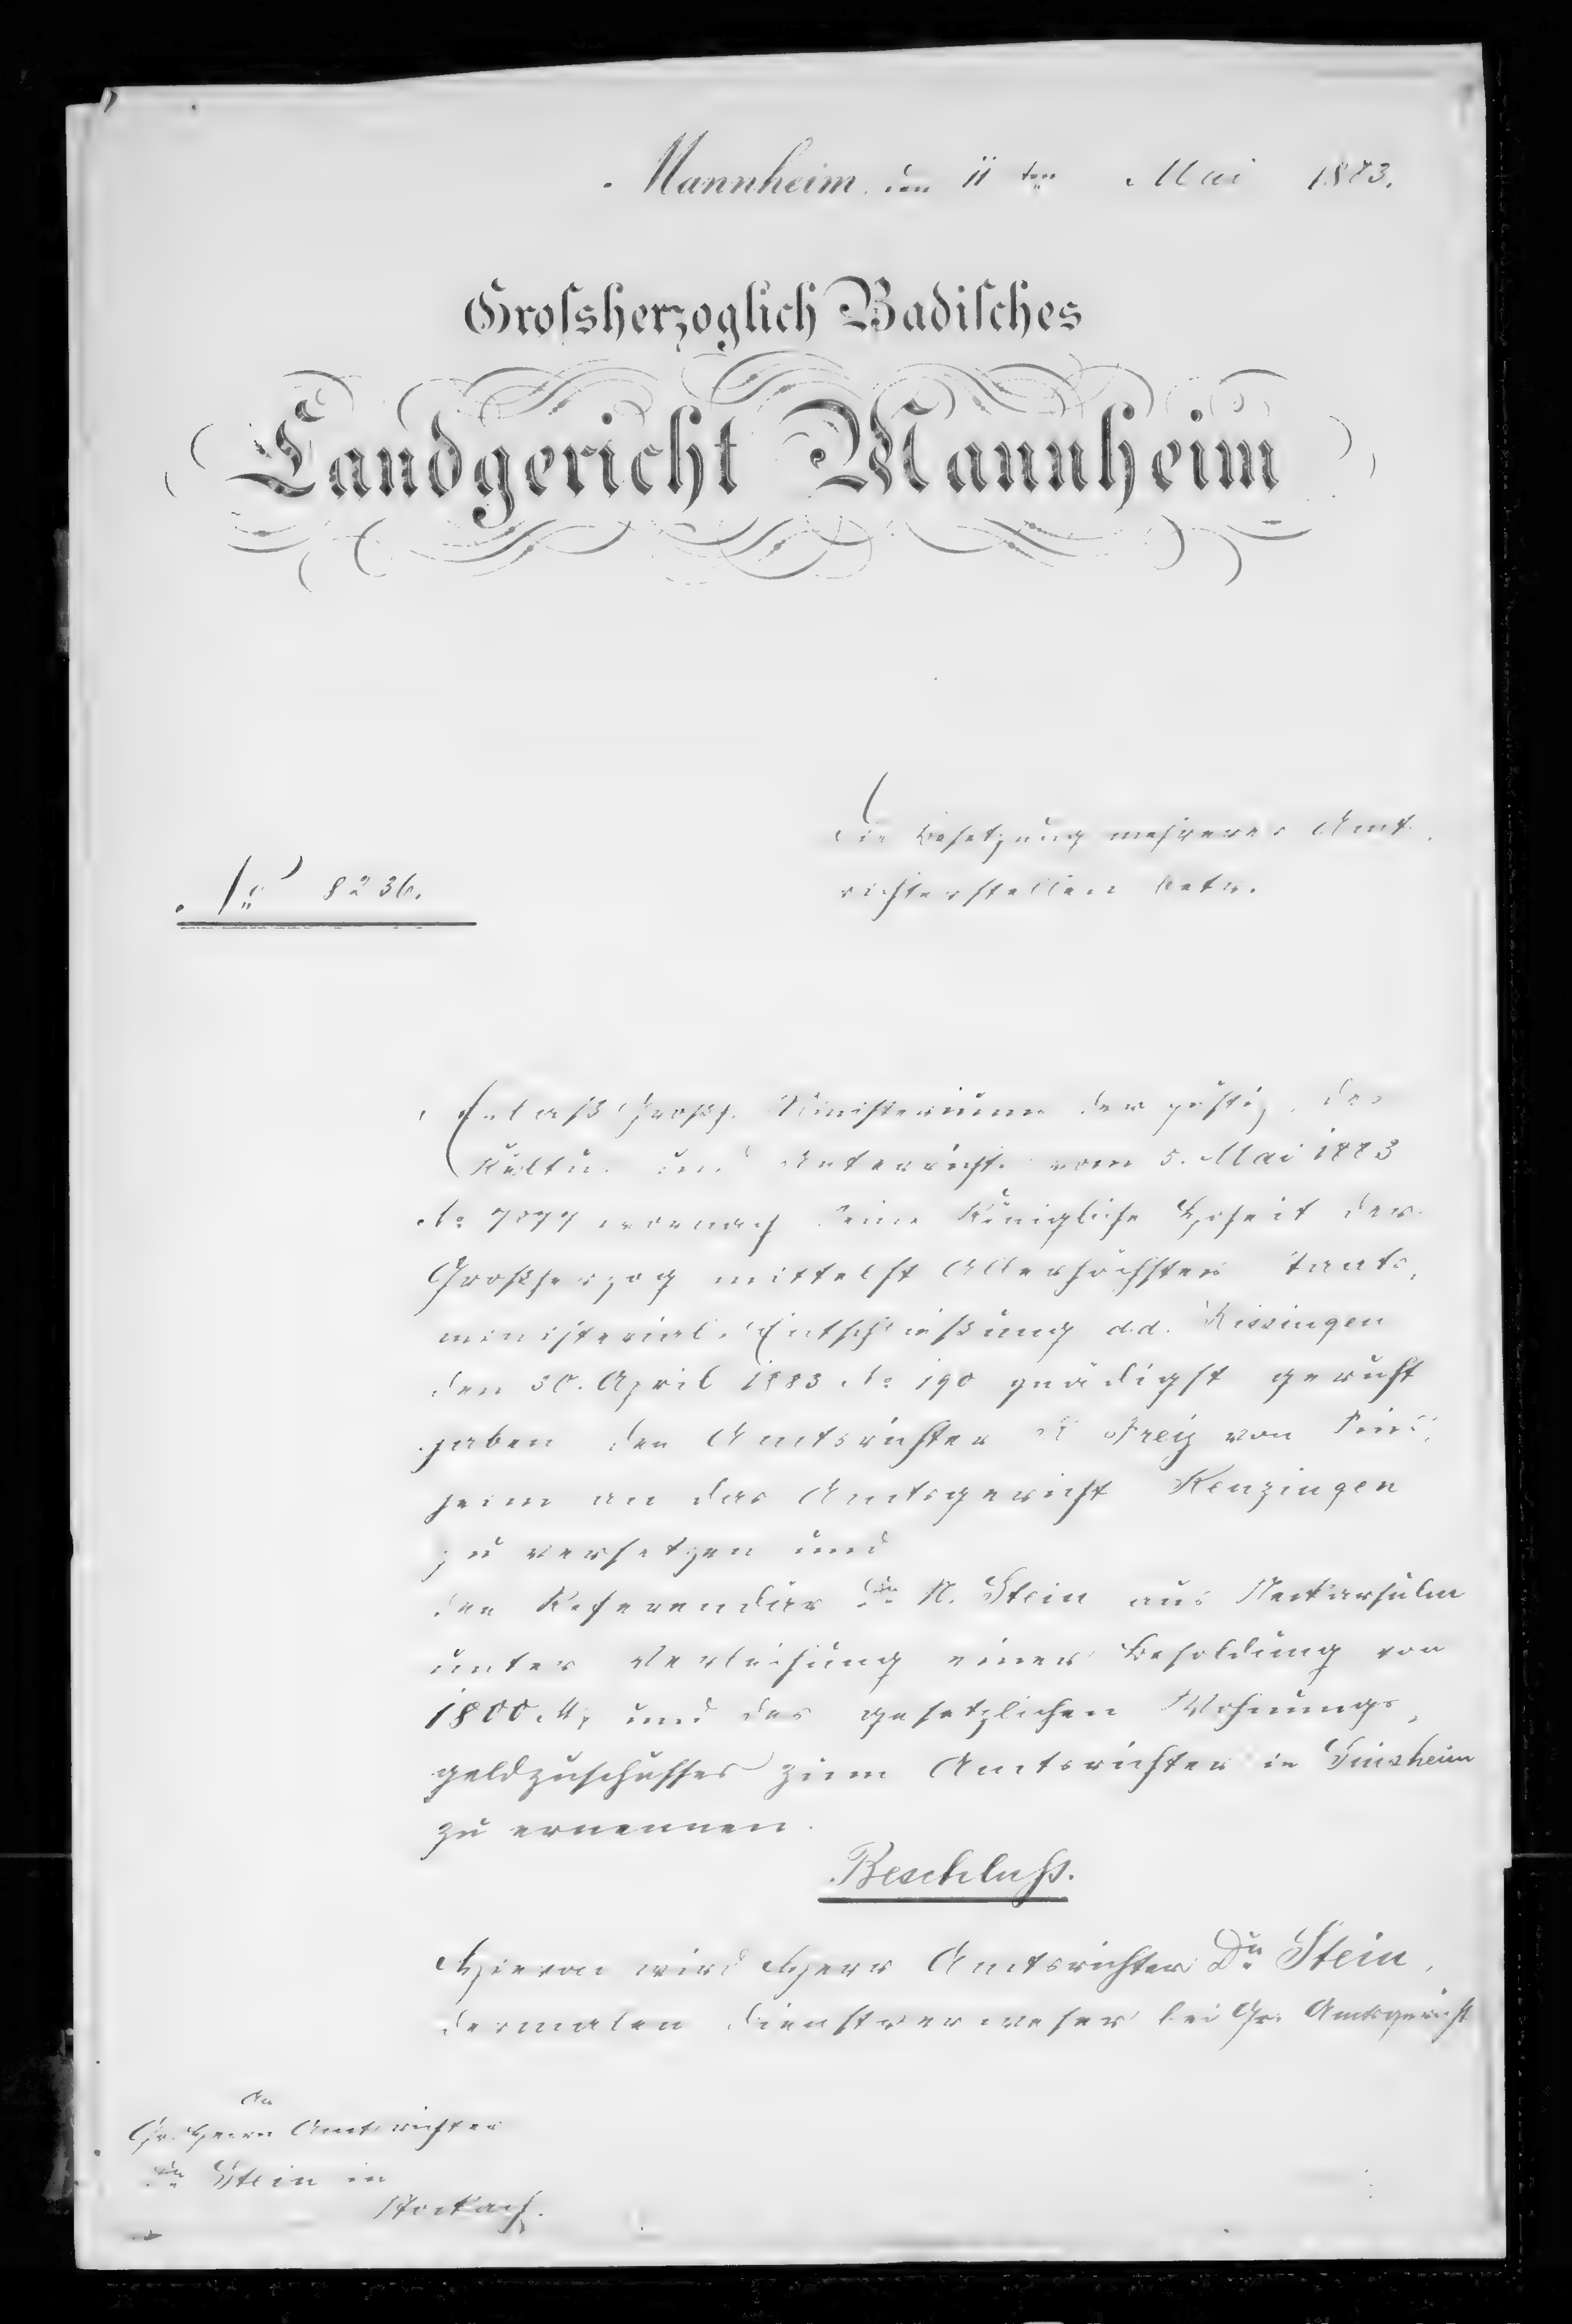 Mannheim, den 11ten Mai 1883.
Grossherzoglich Badisches
Landgericht Mannheim
Die Besetzung mehrerer Amt-
richterstellen betr.
No 8236.
Erlaß Großh. Ministeriums der Justiz, des
Kultus und Unterrichts vom 5. Mai 1883
No wornach Seine Königliche Hoheit der
Großherzog mittelst Allerhöchster Staats-
ministerial-Entschließung d.d. Kissingen
den 30. April 1883 No 190 gnädigst geruht
haben den Amtsrichter Frey von Sins-
heim an das Amtsgericht Kenzingen
zu versetzen und
den Referendär Dr. N. Stein aus Neckarsulm
unter Verleihung einer Besoldung von
1800 M. und des gesetzlichen Wohnungs-
geldzuschusses zum Amtsrichter in Sinsheim
zu ernennen.
Beschluß.
Hievon wird Herr Amtsrichter Dr. Stein,
dermalen Dienstverweser bei Gr. Amtsgericht
An
Gr. Herrn Amtsrichter
Dr. Stein in
Stockach.